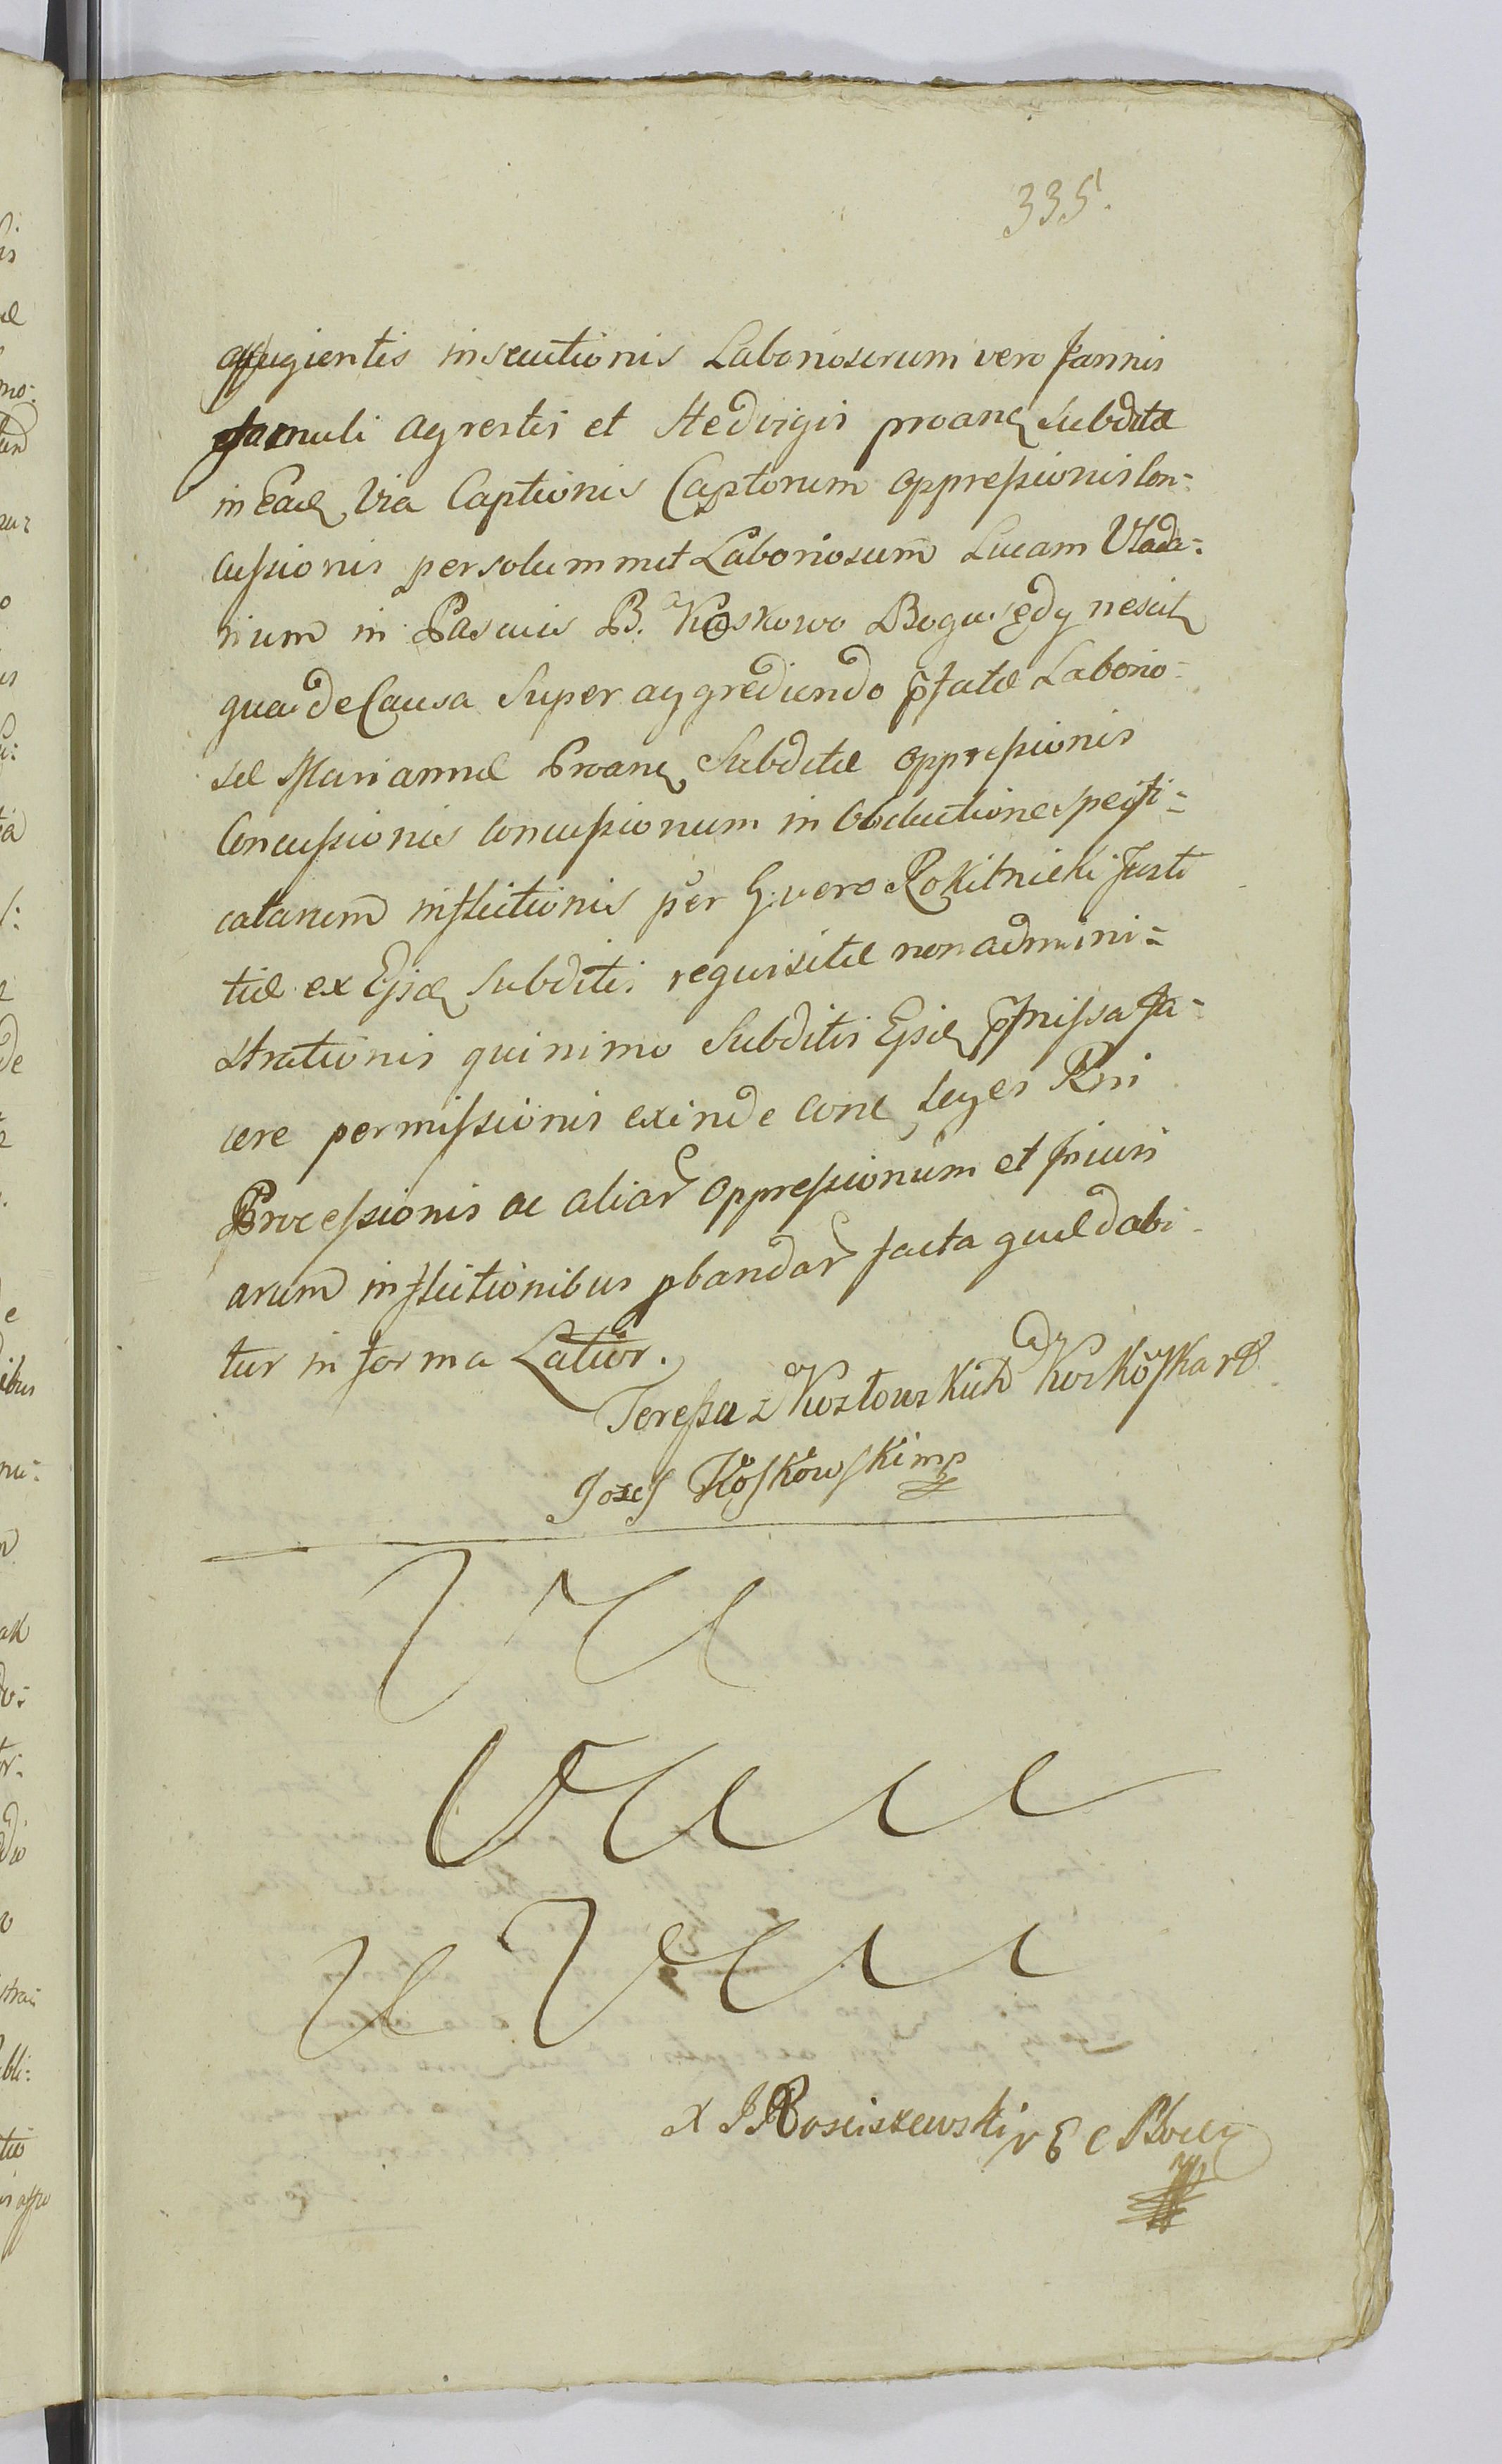 335.
affugientis insecutionis Laboriosorum vero Joannis
famuli agrestis et Hedvigis proanc subditæ
in Ead via Captionis Captorum oppressionis Con-
cussionis per solummet Laboriosum Lucam Vlada-
rium in Pascuis B. Koskowo Bogusędy nescit
qua de Causa Super aggrediendo pfatæ Laborio-
sæ Mariannæ Proanc Subditæ oppressionis
Concussionis Concussionum in Obductione specifi-
catarum inflictionis per G. vero Rokitnicki Justi
tiæ ex Ejsd subditis requisitæ non admini-
strationis quinimo Subditis Ejsd pmissa fa-
cere permissionis exinde cone leges Rni
Processionis ac aliar oppressionum et Injuri
arum inflictionibus pbandar facta quæ dabi
tur in forma Latior.
Teressa z Kozłowskich Koskoska
Jozef Koskowski mp
X J Rosciszewski